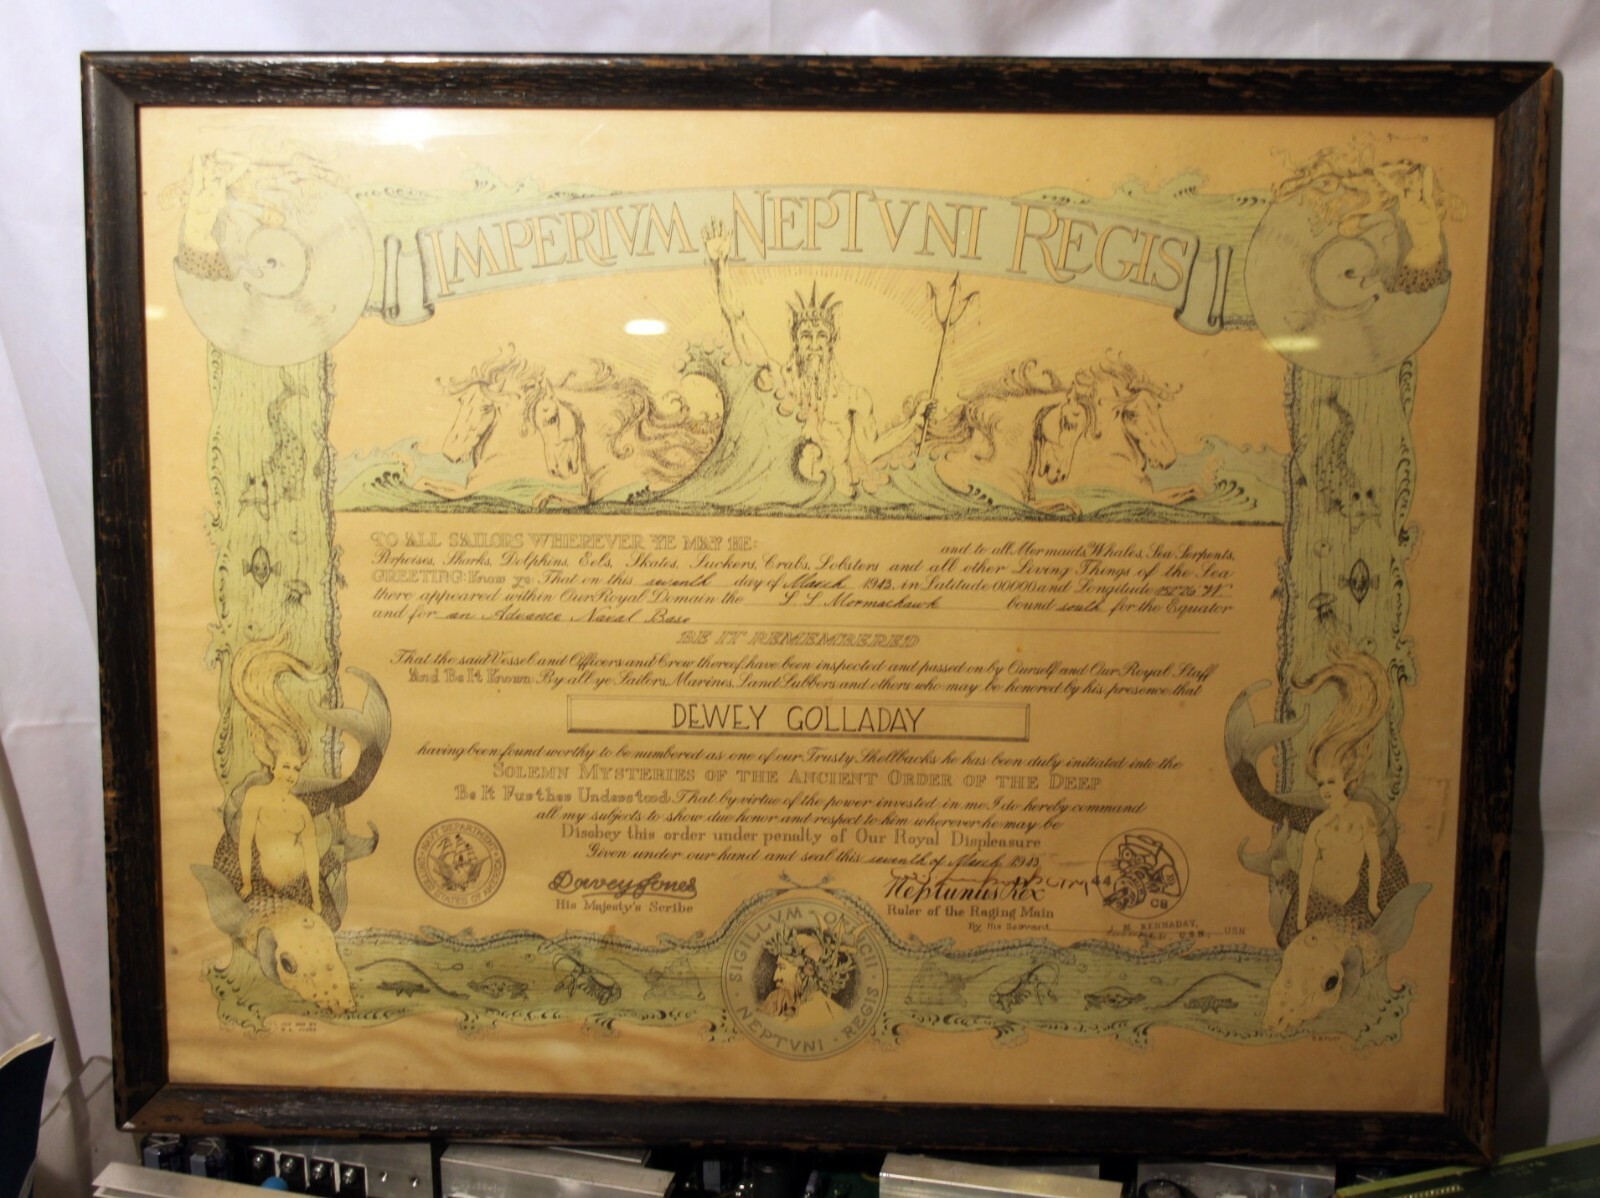 IMPERIVM NEPTVNI REGIS
TO ALL SAILORS WHEREVER YE MAY BE: and to all Mermaids, Whales, Sea Serpents,
Porpoises, Sharks, Dolphins, Eels, Skates, Suckers, Crabs, Lobsters and all other Living Things of the Sea
GREETING: Know ye That on this seventh day of March 1943. in Latitude 00000 and Longitude W
there appeared within Our Royal Domain the S. S. Mormachawk bound south for the Equator
and for an Advance Naval Base
BE IT REMEMBERED
That the said Vessel and Officers and Crew thereof have been inspected and passed on by Ourself and Our Royal Staff
And Be It Known: By all ye Sailors, Marines, Land Lubbers and others who may be honored by his presence that
DEWEY GOLLADAY
having been found worthy to be numbered as one of our Trusty Shellbacks he has been duly initiated into the
SOLEMN MYSTERIES OF THE ANCIENT ORDER OF THE DEEP
Be It Further Understood That by virtue of the power invested in me I do hereby command
all my subjects to show due honor and respect to him wherever he may be
Disobey this order under penalty of Our Royal Displeasure
Given under our hand and seal this seventh of March 1943
NAVY DEPARTMENT
UNITED STATES OF AMERICA
Davey Jones
His Majesty's Scribe
Neptunus Rex
Ruler of the Raging Main
By His Servant
KENNADAY, USN
CB
SIGILLVM NEPTVNI REGIS